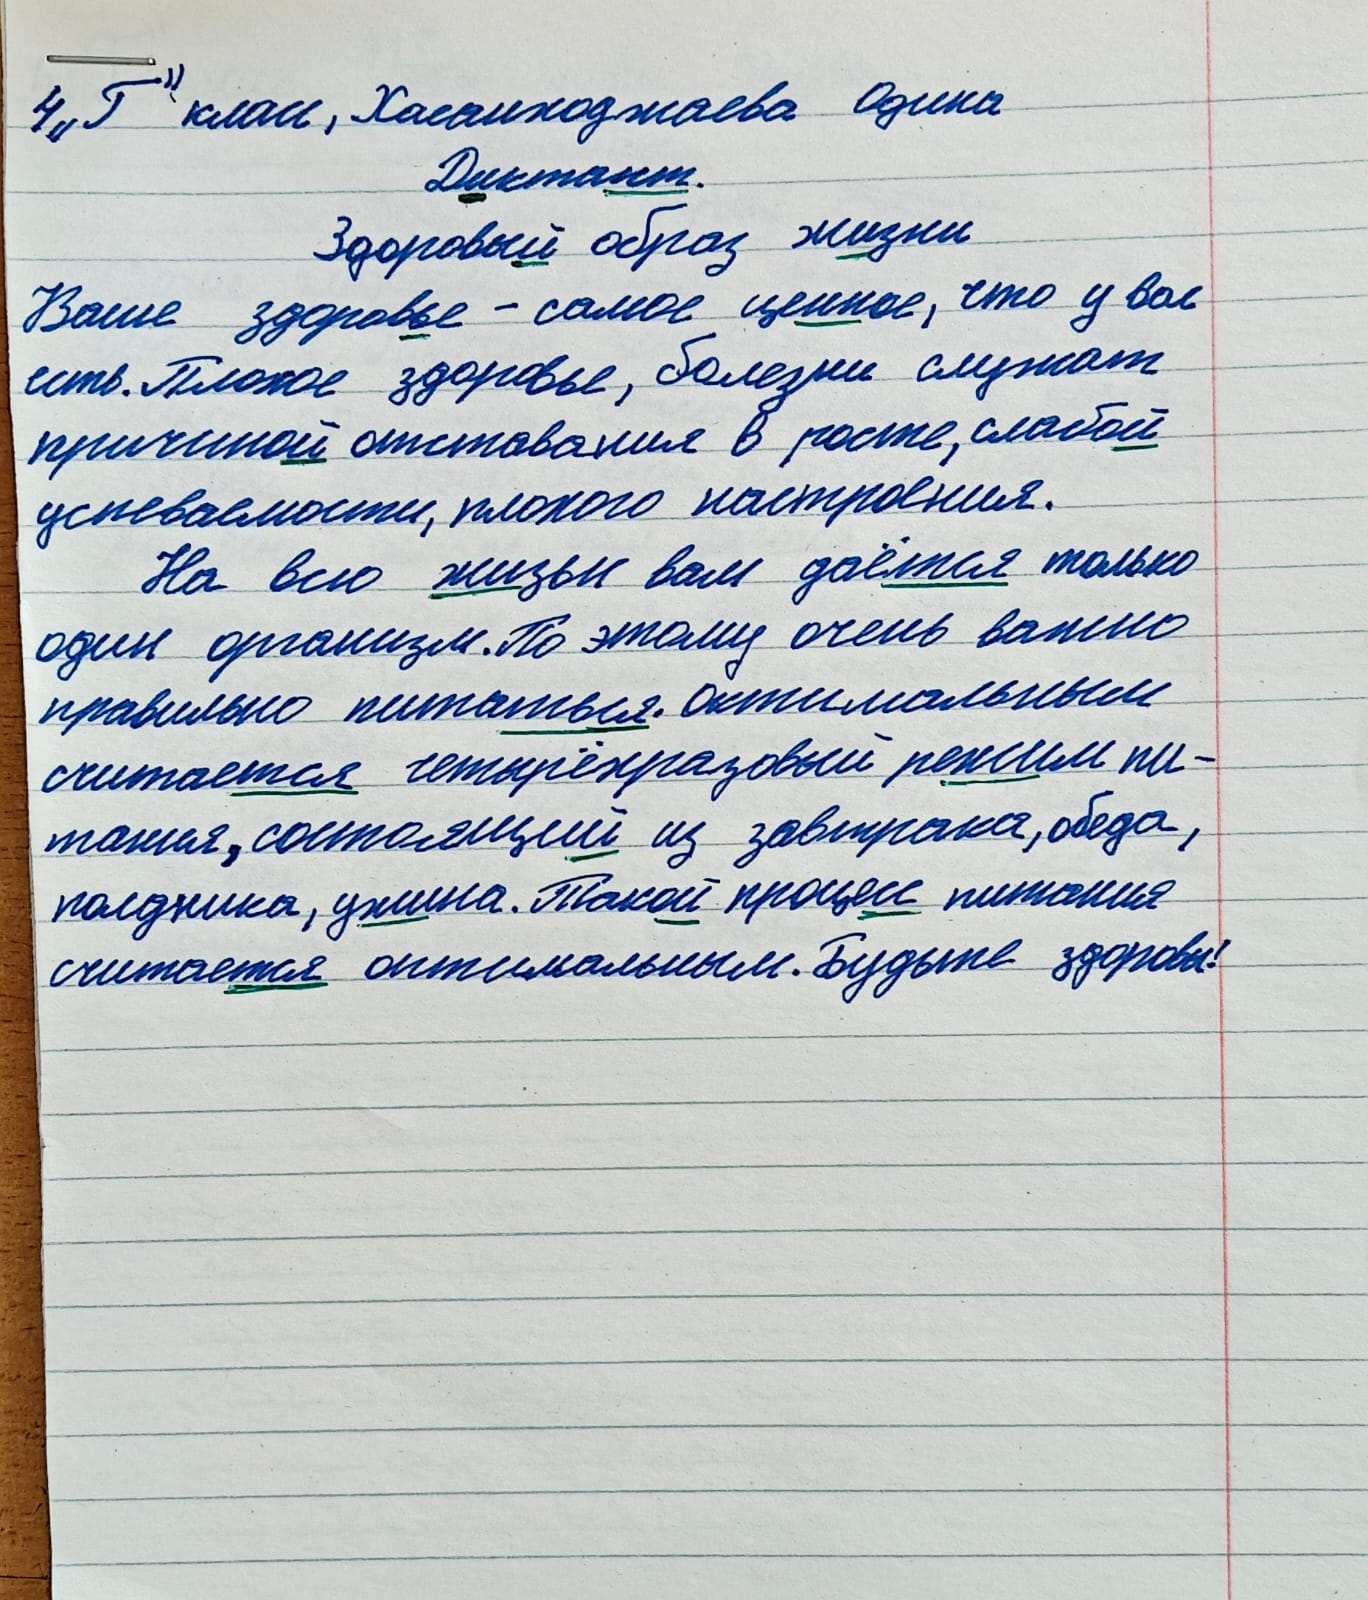 4 „Г" класс, Хасанходжаева Одина
Диктант.
Здоровый образ жизни
Ваше здоровье – самое ценное, что у вас
есть. Плохое здоровье, болезни служат
причиной отставания в росте, слабой
успеваемости, плохого настроения.
На всю жизнь вам даётся только
один организм. По этому очень важно
правильно питаться. Оптимальным
считается четырёхразовый режим пи-
тания, состоящий из завтрака, обеда,
полдника, ужина. Такой процесс питания
считается оптимальным. Будьте здоровы!